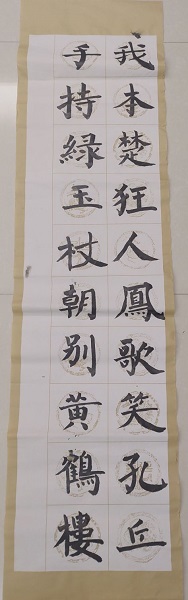 我本楚狂人鳳歌笑孔丘
手持緑玉杖朝别黄鶴樓